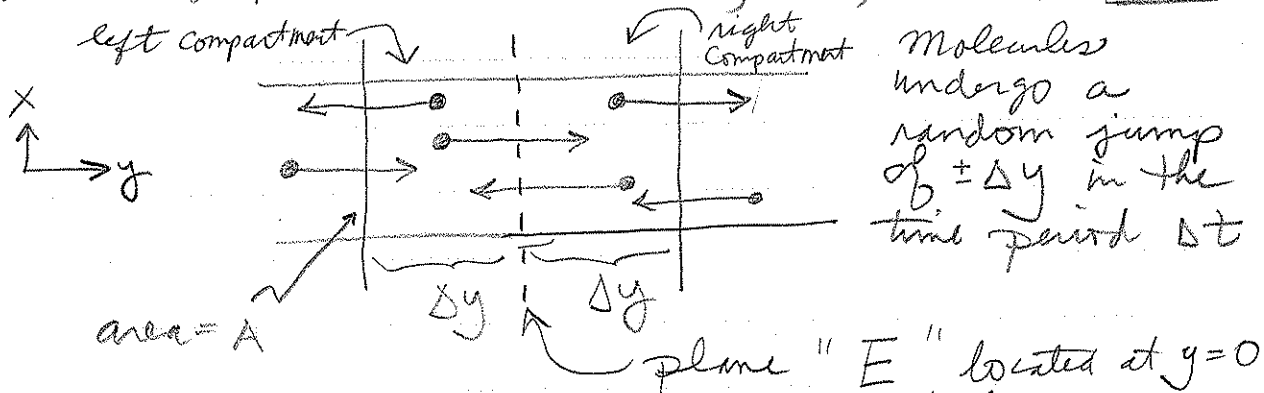 left compartment
right
compartment
Molecules
undergo a
random jump
of ± Δy in the
time period Δt
X
y
Δy
Δy
area = A
plane "E" located at y=0